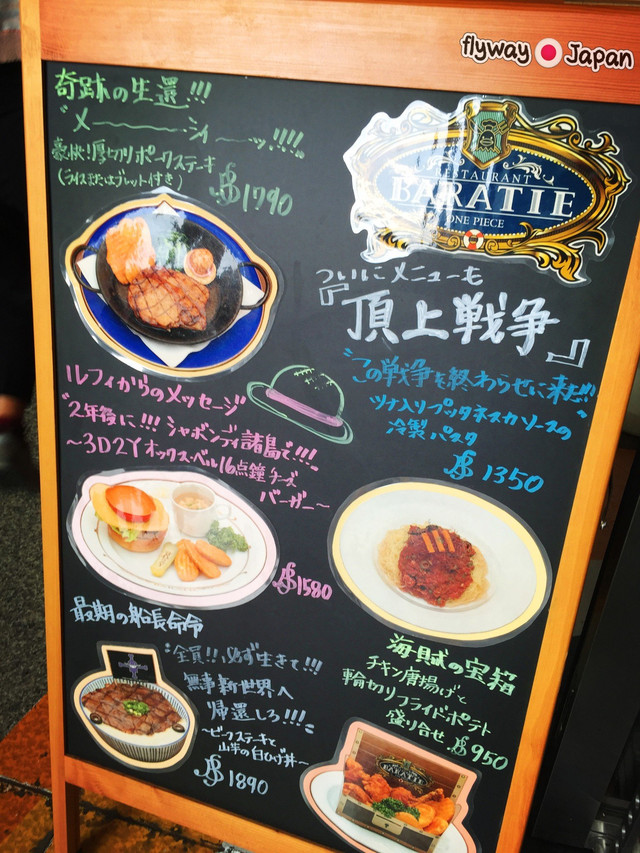 flyway Japan
奇跡の生還!!!
"メ〜〜シィ〜〜ッ!!!!"
豪快!厚切りポークステーキ
(ライスまたはブレット付き)
1790
RESTAURANT
BARATIE
ONE PIECE
ついにメニューも
『頂上戦争』
"この戦争を終わらせに来た!!"
ツナ入りプッタネスカソースの
冷製パスタ
1350
ルフィからのメッセージ
"2年後に!!!シャボンディ諸島で!!!"
〜3D2Yオックス・ベル16点鐘チーズ
バーガー〜
1580
最期の船長命令
"全員!!必ず生きて!!!
無事新世界へ
帰還しろ!!!"
〜ビーフステーキと
山芋の白ひげ丼〜
1890
海賊の宝箱
チキン唐揚げと
輪切りフライドポテト
盛り合せ
950
BARATIE